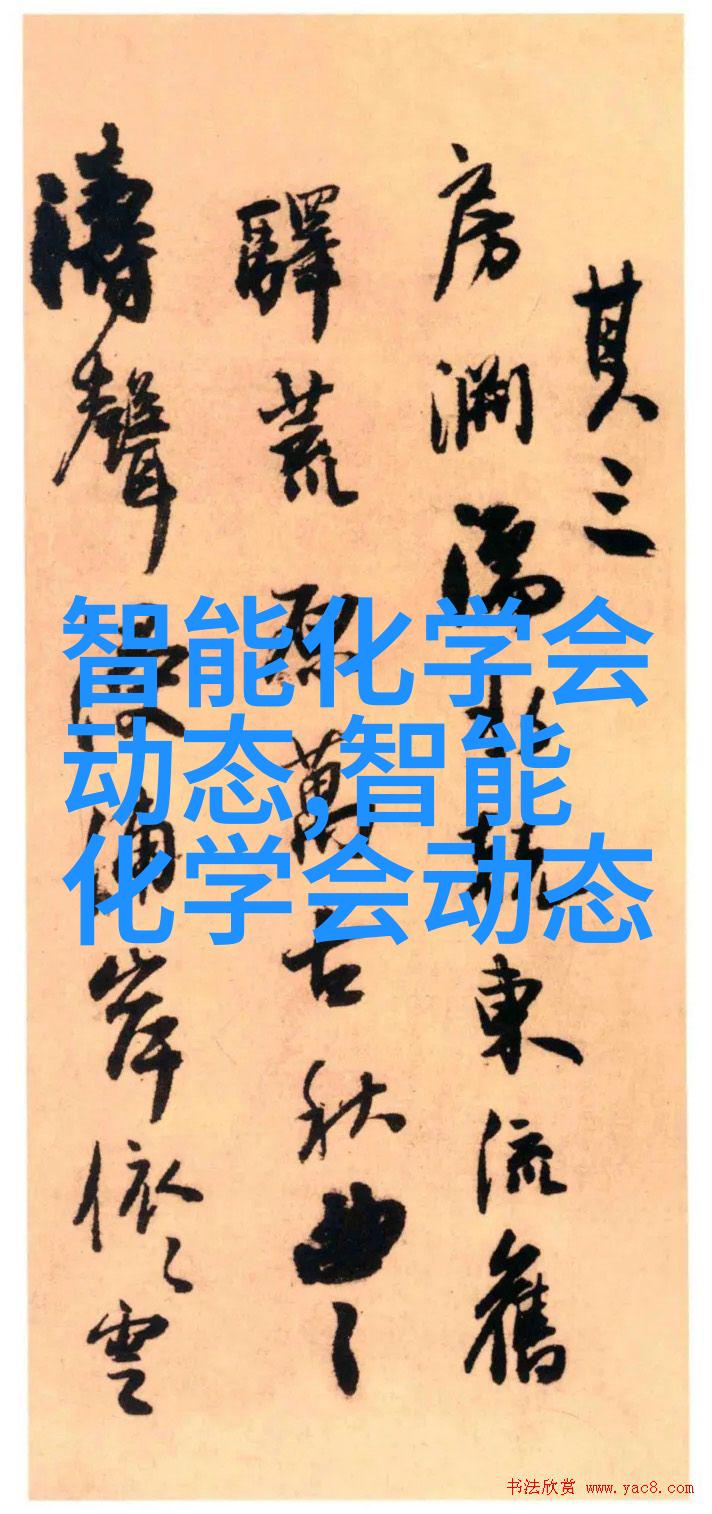 其三
房渊濡
東流舊
驛荒
萬古秋曲々
濤聲
岸依々雲
智能化学会
动态,智能
化学会动态
书法欣赏 www.yac8.com